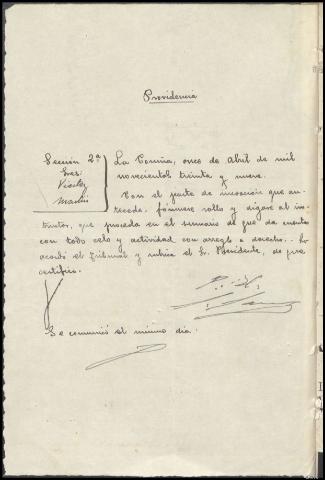 Providencia
Sección 2ª
Sres.
Martín
La Coruña, once de Abril de mil
novecientos treinta y nueve.
Con el parte de incoación que an-
tecede, fórmese rollo y dígase al ins-
tructor, que proceda en el sumario de que da cuenta
con todo celo y actividad con arreglo a derecho. Lo
acordó el Tribunal y rubrica el Sr. Presidente, de que
certifico.
Se comunicó el mismo día.